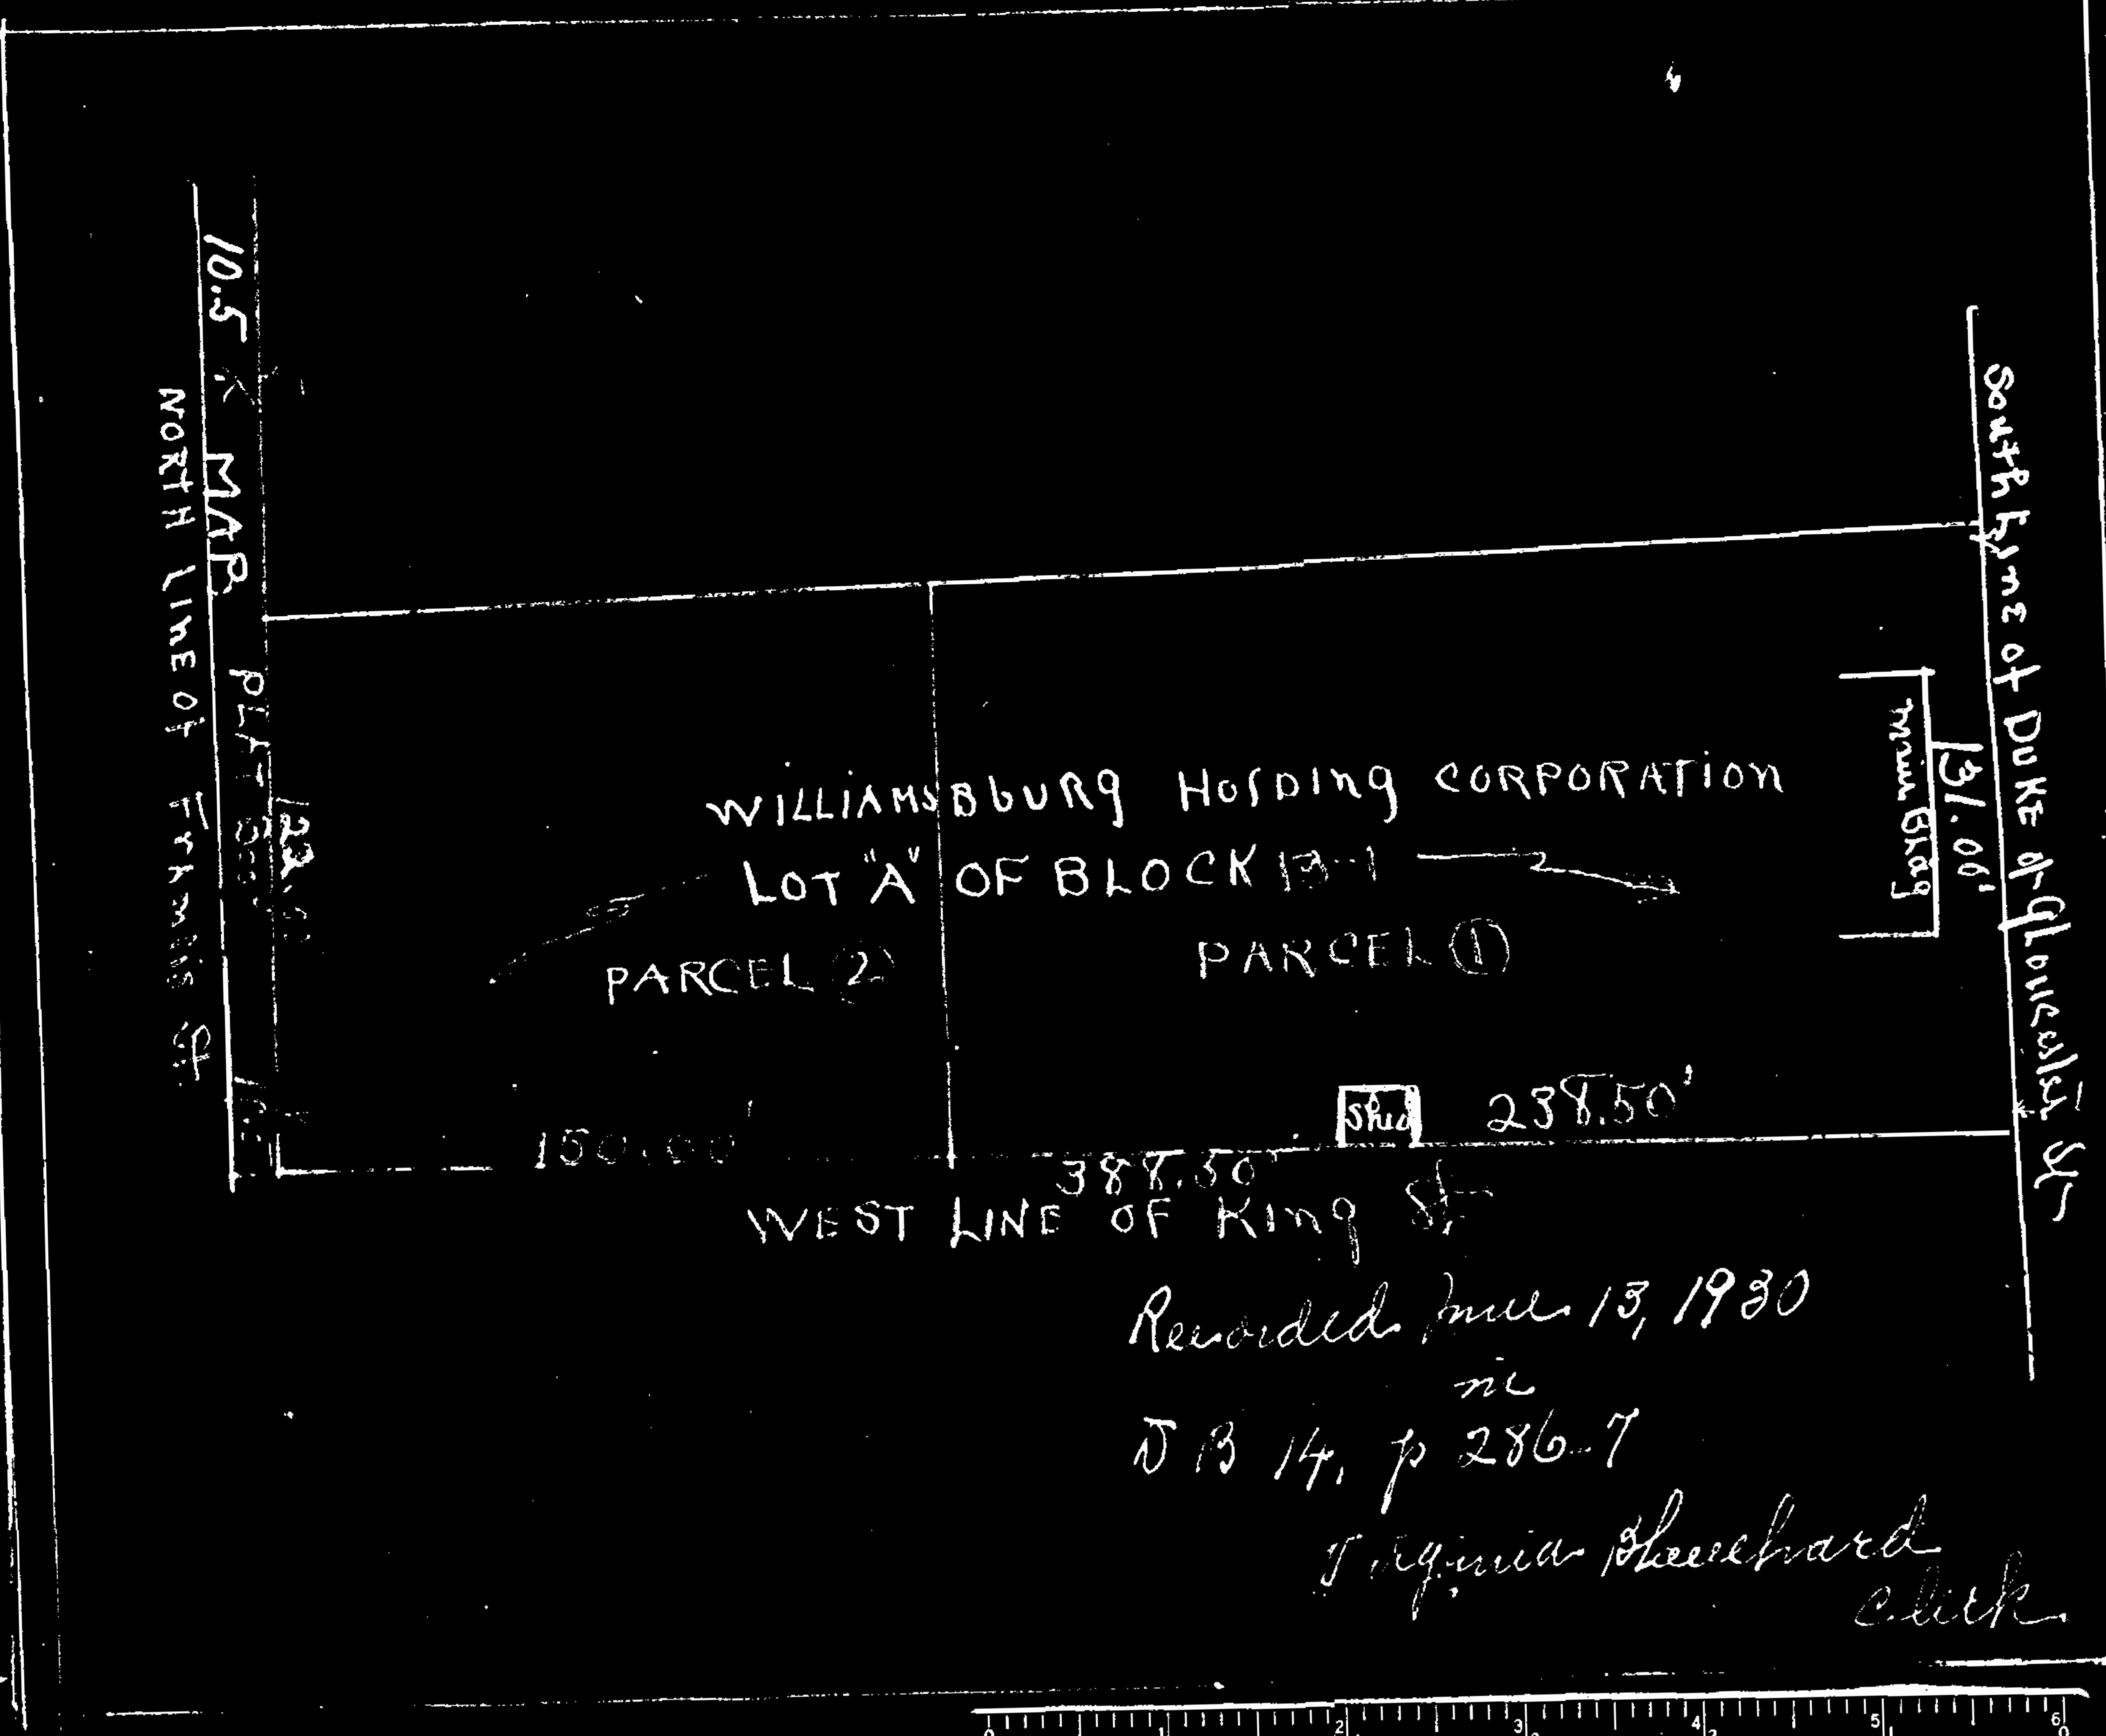 10.5
MAP
PLAT
NORTH LINE OF Francis St.
South Line of Duke of Gloucester St
131.00'
Main Bldg
WILLIAMSBBURG HOLDING CORPORATION
LOT "A" OF BLOCK 13-1
PARCEL (2)
PARCEL (1)
Shed
238.50'
150.00'
388.50'
WEST LINE OF King St.
Recorded June 13, 1930
in
D B 14, p 286-7
Virginia Blanchard
Clerk
0 1 2 3 4 5 6